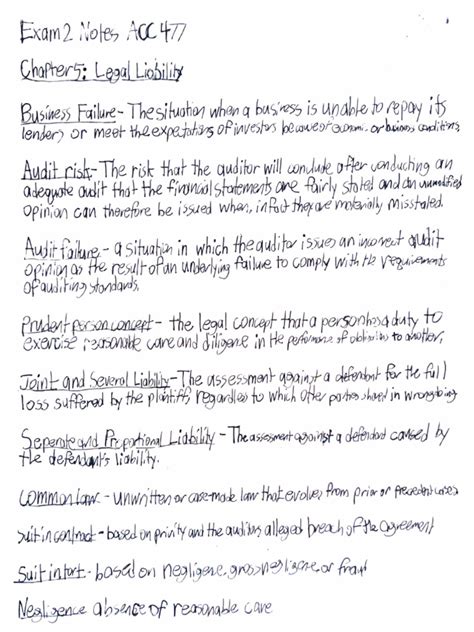 Exam 2 Notes ACC 477
Chapter 5: Legal Liability
Business Failure - The situation when a business is unable to repay its
lenders or meet the expectations of investors because of econom. or business conditions
Audit risk - The risk that the auditor will conclude after conducting an
adequate audit that the financial statements are fairly stated and an unmodified
opinion can therefore be issued when, in fact they are materially misstated
Audit failure - a situation in which the auditor issues an incorrect audit
opinion as the result of an underlying failure to comply with the requirements
of auditing standards.
Prudent person concept - the legal concept that a person has a duty to
exercise reasonable care and diligence in the performance of obligations to another.
Joint and Several Liability - The assessment against a defendant for the full
loss suffered by the plaintiff, regardless to which other parties shared in wrongdoing
Seperate and Proportional Liability - The assessment against a defendant caused by
the defendant's liability.
Common law - unwritten or case-made law that evolves from prior or precedent cases
suit in contract - based on privity and the auditors alleged breach of the agreement
Suit in tort - based on negligence, gross negligence or fraud
Negligence absence of reasonable care